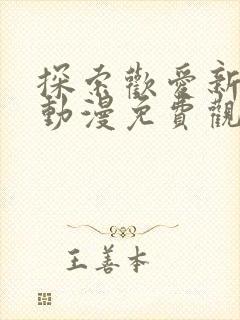 探索歡愛新
動漫免費觀
王善本